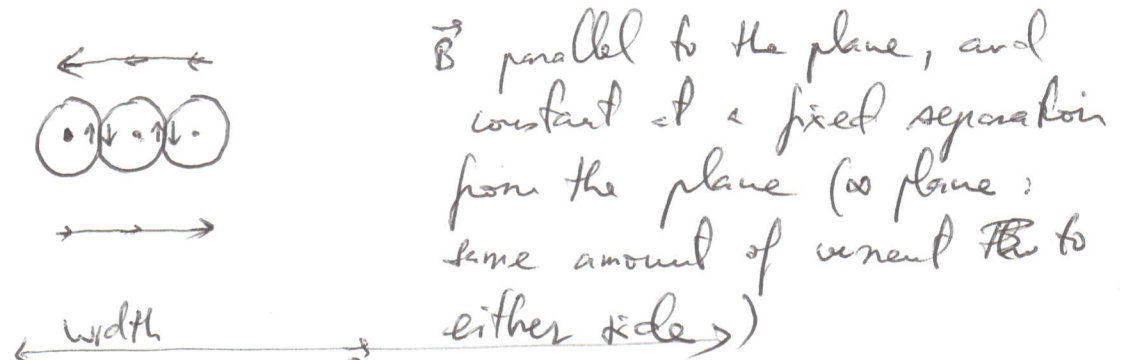 B parallel to the plane, and
constant at a fixed separation
from the plane (∞ plane :
same amount of current to
either side)
width